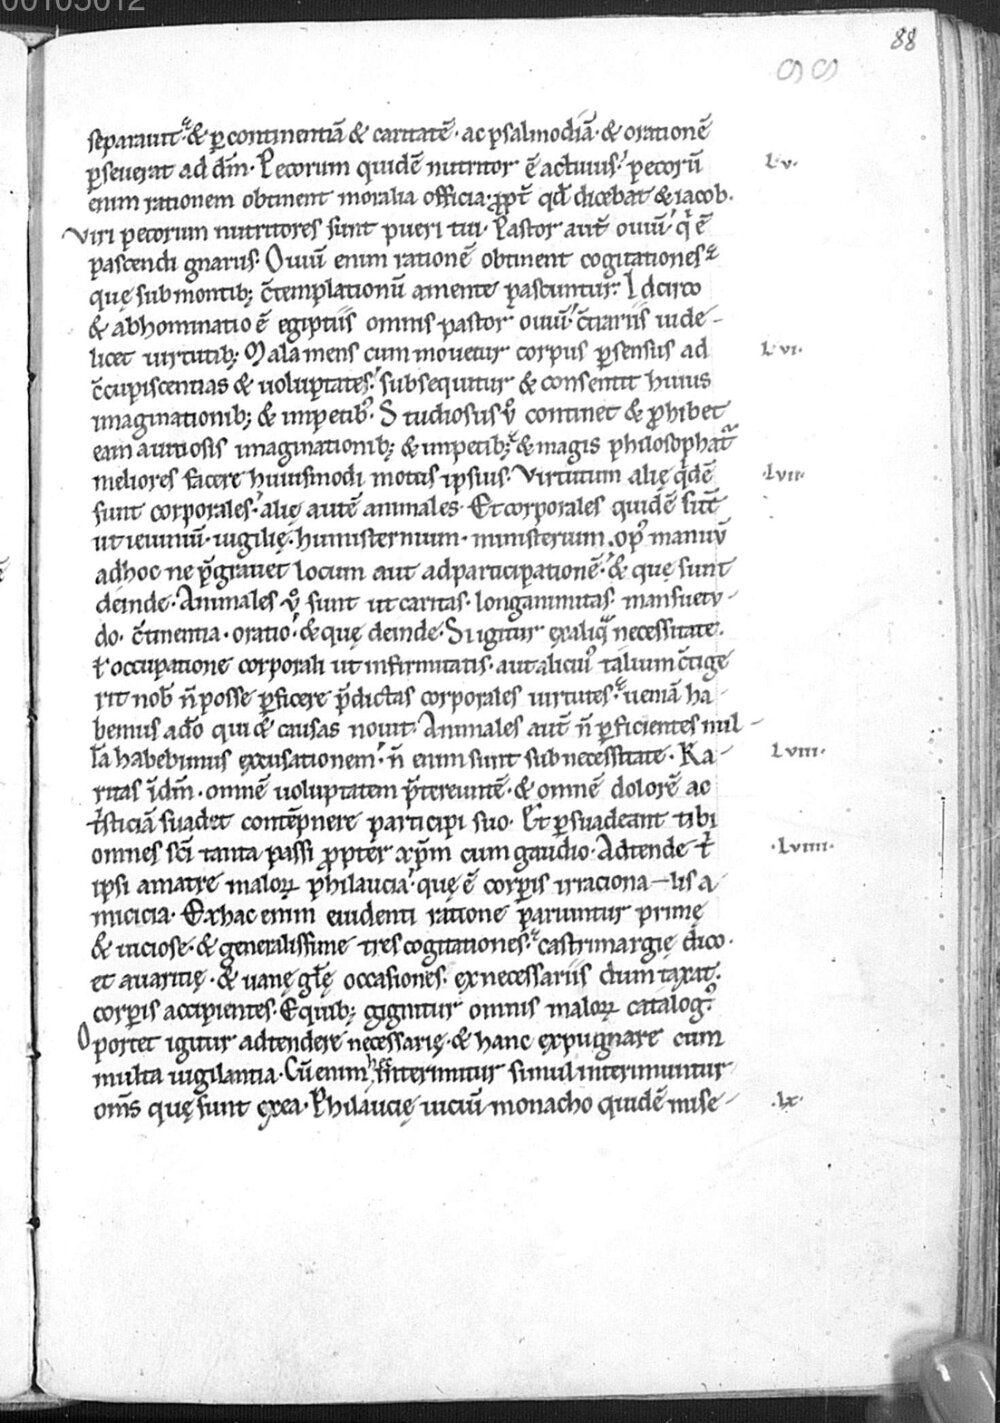 00105012
88
separauit. & p continentiā & caritatē. ac psalmodiā. & orationē
pseuerat ad dm̄. Pecorum quidē nutritor ē actiuus. pecorū
Lv.
enim rationem obtinent moralia officia. ꝓpt̄ qđ dicebat & iacob.
Viri pecorum nutritores sunt pueri tui. Pastor aut̄ ouiū. q̇ ē
pascendi gnarus. Ouiū enim rationē obtinent cogitationes
quę sub montib; c̄templationū a mente pascuntur. Idcirco
& abhominatio ē egiptiis omnis pastor ouiū. c̄trariis uide-
licet uirtutib; Mala mens cum mouetur corpus p sensus ad
Lvi.
c̄cupiscentias & uoluptates. subsequitur & consentit huius
imaginationib; & impetib;. Studiosus ů continet & ꝓhibet
eam a uitiosis imaginationib; & impetib; & magis philosophat̄
meliores facere huiusmodi motus ipsius. Virtutum alię qdē
Lvii.
sunt corporales. alię autē animales. Et corporales quidē sūt
ut ieiuniū. uigilię. humisternium. ministerium. op᾽ manuū
adhoc ne p̄grauet locum aut ad participationē. & quę sunt
deinde. Animales ů sunt ut caritas. longanimitas. mansuetu-
do. c̄tinentia. oratio. & quę deinde. Si igitur ex aliq̇ necessitate.
ł occupatione corporali ut infirmitatis. aut alicui᾽ talium c̄tige
rit nob̄ n̄ posse pficere p̄dictas corporales uirtutes. ueniā ha-
bemus a dō qui & causas nouit. Animales aut̄ n̄ pficientes nul-
lā habebimus excusationem. n̄ enim sunt sub necessitate. Ka-
Lviii.
ritas ī dm̄. omnē uoluptatem p̄tereuntē. & omnē dolorē ac
t̄sticiā suadet contēpnere participi suo. Et psuadeant tibi
omnes sc̄i tanta passi ꝓpter xp̄m cum gaudio. Adtende t̄
.Lviiii.
ipsi a matre maloꝝ philaucia. quę ē corpis irraciona-lis a-
micicia. Ex hac enim euidenti ratione pariuntur prime
& uiciose. & generalissime tres cogitationes. castrimargię dico.
et auaritię. & uanę glę occasiones. ex necessariis dum taxat.
corpis accipientes. E quib; gignitur omnis maloꝝ catalog᾽.
Oportet igitur adtendere necessarię. & hanc expugnare cum
multa uigilantia. Cū enim interimitur simul interimuntur
om̄s quę sunt ex ea. Philaucię uiciū monacho quidē mise-
.Lx.